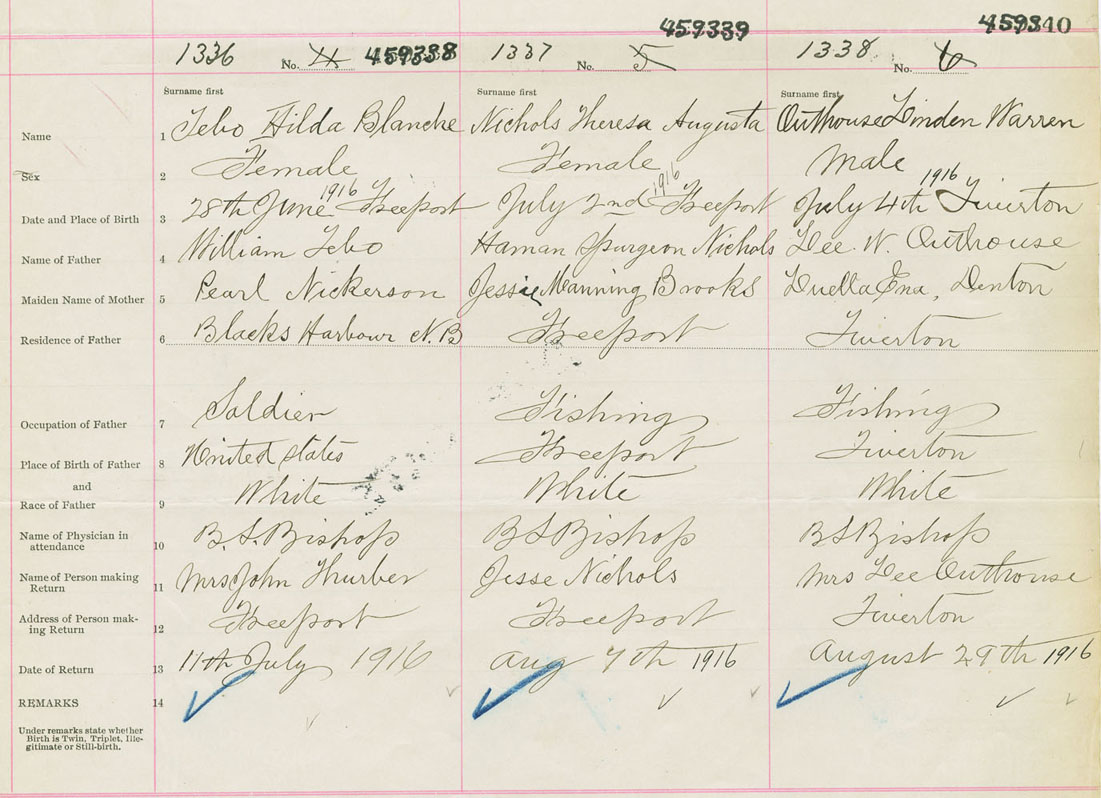 459339 459340
1336 No. 4 459338 1337 No. 5 1338 No. 6
Surname first Surname first Surname first
Name 1 Tebo Hilda Blanche Nichols Theresa Augusta Outhouse Linden Warren
Sex 2 Female Female Male
1916 1916 1916
Date and Place of Birth 3 28th June Freeport July 2nd Freeport July 4th Tiverton
Name of Father 4 William Tebo Haman Spurgeon Nichols Lee. W. Outhouse
Maiden Name of Mother 5 Pearl Nickerson Jessie Manning Brooks Luella Ena, Denton
Residence of Father 6 Blacks Harbour N.B Freeport Tiverton
Occupation of Father 7 Soldier Fishing Fishing
Place of Birth of Father 8 United States Freeport Tiverton
and
Race of Father 9 White White White
Name of Physician in attendance 10 B. S. Bishop B S Bishop B S Bishop
Name of Person making Return 11 Mrs John Thurber Jesse Nichols Mrs Lee Outhouse
Address of Person mak-ing Return 12 Freeport Freeport Tiverton
Date of Return 13 11th July 1916 Aug 7th 1916 August 29th 1916
REMARKS 14
Under remarks state whether
Birth is Twin, Triplet, Ille-
gitimate or Still-birth.